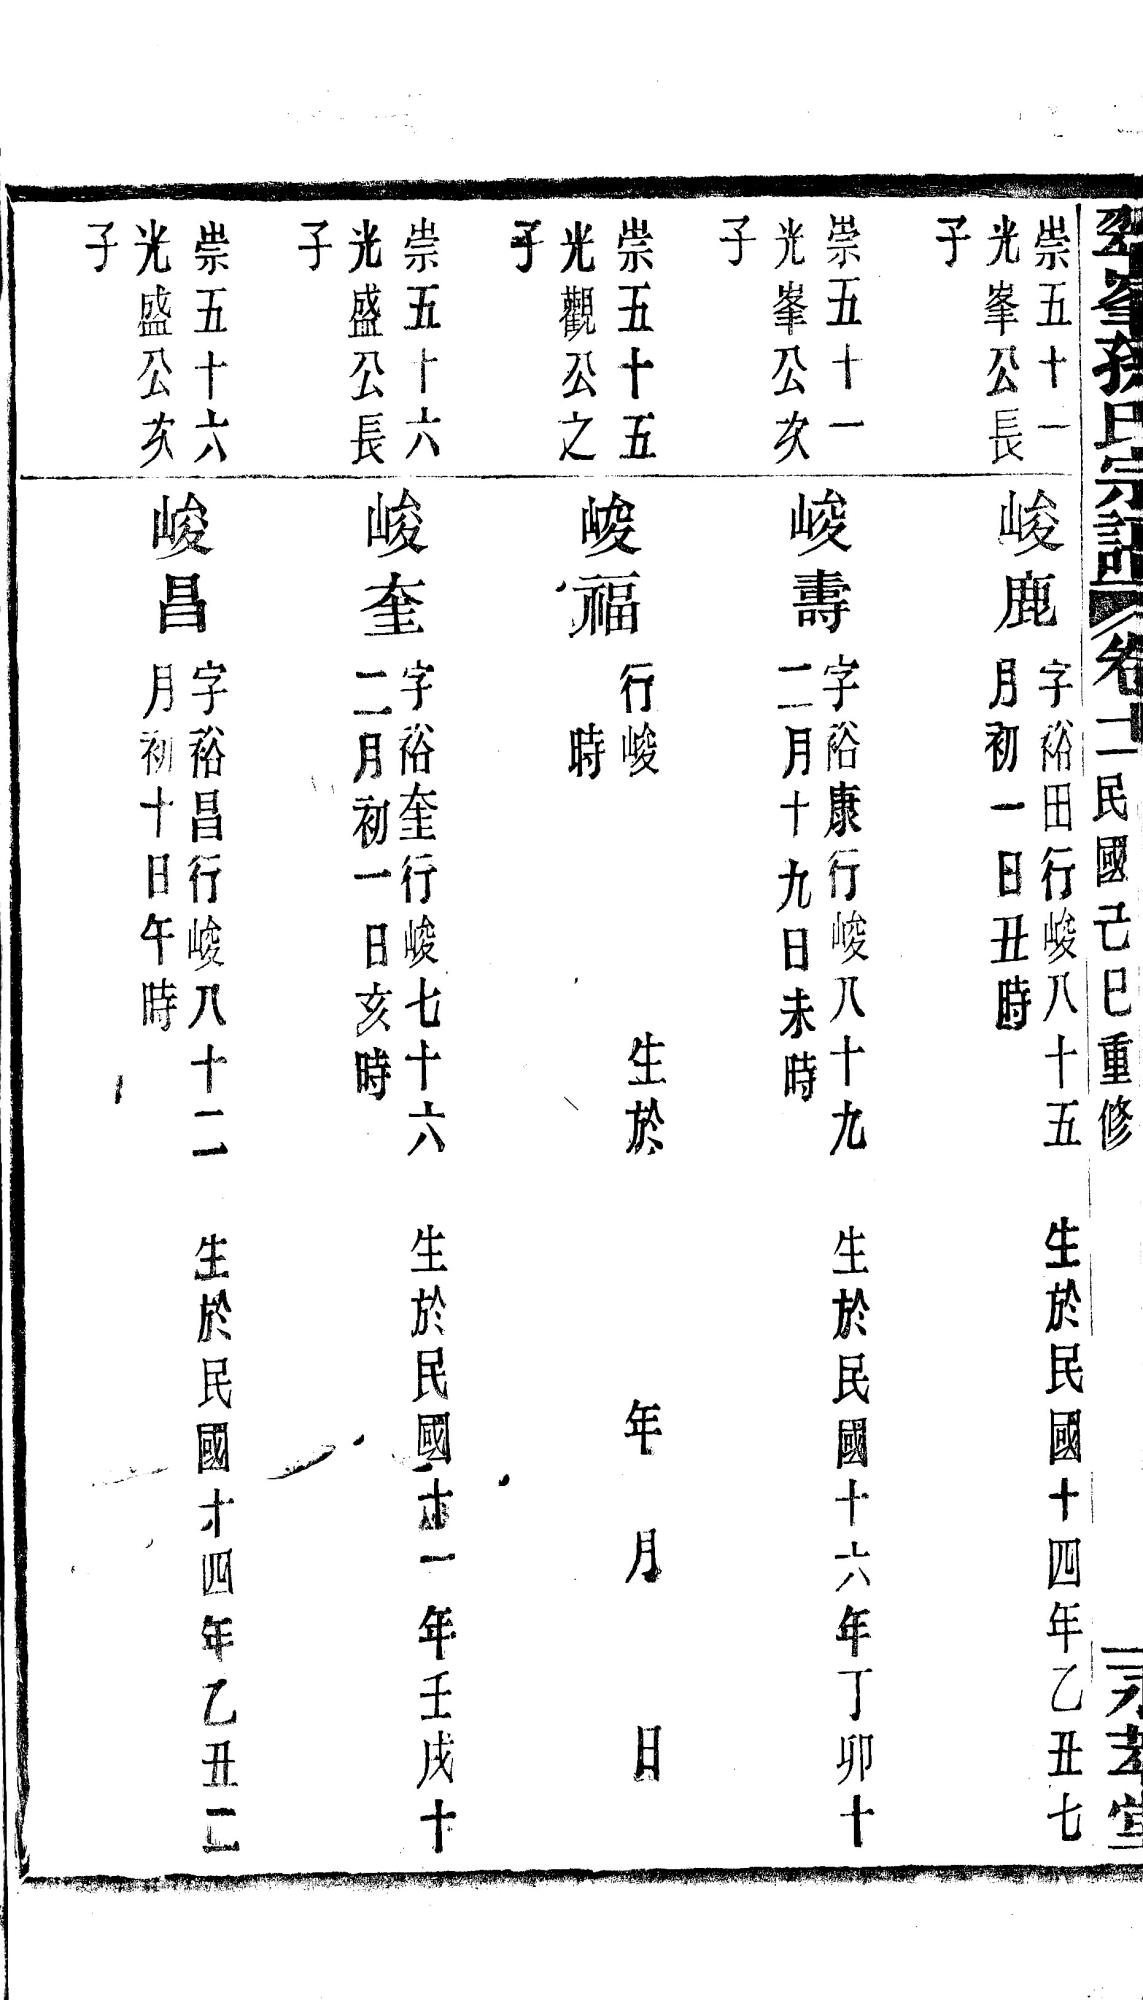 翠峯孫氏宗譜 卷十二 民國己巳重修 永萃堂
崇五十一
光峯公長
子
峻鹿
字裕田行峻八十五 生於民國十四年乙丑七
月初一日丑時
崇五十一
光峯公次
子
峻壽
字裕康行峻八十九 生於民國十六年丁卯十
二月十九日未時
崇五十五
光觀公之
子
峻福
行峻 生於 年 月 日
時
崇五十六
光盛公長
子
峻奎
字裕奎行峻七十六 生於民國十一年壬戌十
二月初一日亥時
崇五十六
光盛公次
子
峻昌
字裕昌行峻八十二 生於民國十四年乙丑二
月初十日午時